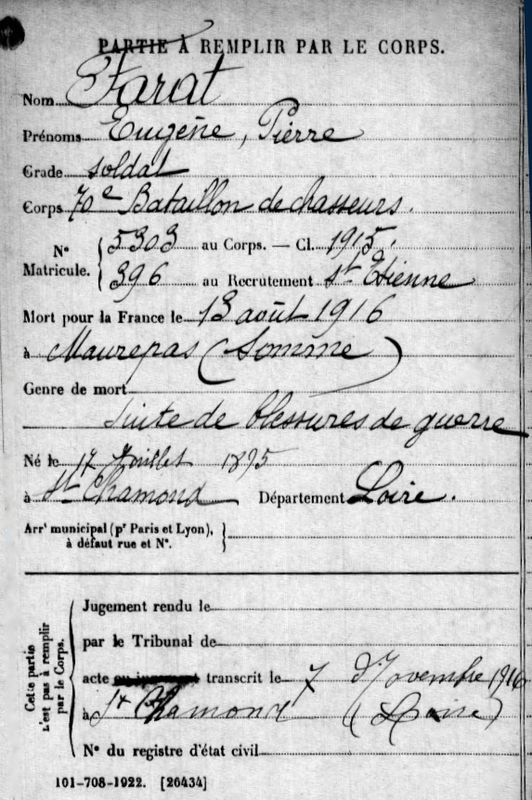 PARTIE À REMPLIR PAR LE CORPS.
Nom Farat
Prénoms Eugène, Pierre
Grade soldat
Corps 70e Bataillon de chasseurs.
N° Matricule. { 5303 au Corps. — Cl. 1915.
396 au Recrutement St Etienne
Mort pour la France le 13 août 1916
à Maurepas (Somme)
Genre de mort
Suite de blessures de guerre
Né le 17 Juillet 1895
à St Chamond Département Loire.
Arrt municipal (pr Paris et Lyon), à défaut rue et N°.
Cette partie n'est pas à remplir par le Corps.
Jugement rendu le
par le Tribunal de
acte ou jugement transcrit le 7 Novembre 1916
à St Chamond (Loire)
N° du registre d'état civil
101-708-1922. [26434]